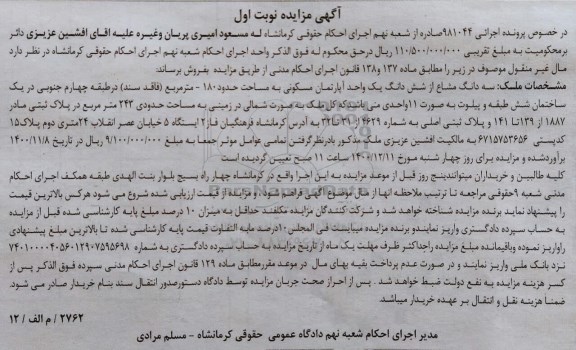 آگهی مزایده نوبت اول
در خصوص پرونده اجرائی ۹۸۱۰۴۴صادره از شعبه نهم اجرای احکام حقوقی کرمانشاه له مسعود امیری پریان وغیره علیه اقای افشین عزیزی دائر
برمحکومیت به مبلغ تقریبی ۱۱۰/۵۰۰/۰۰۰/۰۰۰ ریال درحق محکوم له فوق الذکر واحد اجرای احکام شعبه نهم اجرای احکام حقوقی کرمانشاه در نظر دارد
مال غیر منقول موصوف در زیر را مطابق ماده ۱۳۷ و۱۳۸ قانون اجرای احکام مدنی از طریق مزایده بفروش برساند:
مشخصات ملک: سه دانگ مشاع از شش دانگ یک واحد آپارتمان مسکونی به مساحت حدود۱۸۰ - مترمربع (فاقد سند) درطبقه چهارم جنوبی در یک
ساختمان شش طبقه و پیلوت به صورت ۱۱واحدی می باشد،که کل ملک به صورت شمالی در زمینی به مساحت حدودی ۲۴۳ متر مربع در پلاک ثبتی مادر
۱۸۸۷ از ۱۳۹تا ۱۴۱ و پلاک ثبتی اصلی به شماره ۱۴۶۲۹تا۳۲ به آدرس کرمانشاه فرهنگیان فاز۲ ایستگاه ۵ خیابان عصر انقلاب ۲۴متری دوم پلاک۱۵
کدپستی ۶۷۱۵۷۵۳۶۵۶ به مالکیت افشین عزیزی ملک مذکور بادرنظر گرفتن تمامی عوامل موثر جمعا به مبلغ ۹/۱۰۰/۰۰۰/۰۰۰ ریال در تاریخ ۱۴۰۰/۱۱/۸
برآوردشده و مزایده برای روز چهار شنبه مورخ ۱۴۰۰/۱۲/۱۱ ساعت ۱۱ صبح تعیین گردیده است
کلیه طالبین و خریداران میتوانندپنج روز قبل از موعد مزایده به این اجرا واقع در کرمانشاه چهار راه بسیج بلوار بنت الهدی طبقه همکف اجرای احکام
مدنی شعبه ۹حقوقی مراجعه تا ترتیب ملاحظه آنها از مال موضوع آگهی فراهم شود و مزایده از قیمت ارزیابی شده شروع می شود هرکس بالاترین قیمت
را پیشنهاد نماید برنده مزایده شناخته خواهد شد و شرکت کنندگان مزایده مکلفند حداقل به میزان ۱۰ درصد مبلغ پایه کارشناسی شده قبل از مزایده
به حساب سپرده دادگستری واریز نمایندو برنده مزایده میبایست فی المجلس ۱۰درصد مابه التفاوت قیمت پایه کارشناسی شده تا بالاترین مبلغ پیشنهادی
راواریز نموده وباقیمانده مبلغ مزایده راحداکثر ظرف مهلت یک ماه از تاریخ مزایده به حساب سپرده دادگستری به شماره ۷۴۰۱۰۰۰۰۴۰۵۶۰۱۲۹۰۷۵۹۵۶۹۸
نزد بانک ملی واریز نمایند و در صورت عدم پرداخت بقیه بهای مال در موعد مقررمطابق ماده ۱۲۹ قانون اجرای احکام مدنی سپرده فوق الذکر پس از
کسر هزینه مزایده به نفع دولت ضبط خواهد شد . پس از احراز صحت جریان مزایده توسط دادگاه دستورصدور انتقال سند بنام خریدار صادر می شود.
ضمنا هزینه نقل و انتقال بر عهده خریدار میباشد.
۲۷۶۲ / م الف / ۱۲
مدیر اجرای احکام شعبه نهم دادگاه عمومی حقوقی کرمانشاه - مسلم مرادی